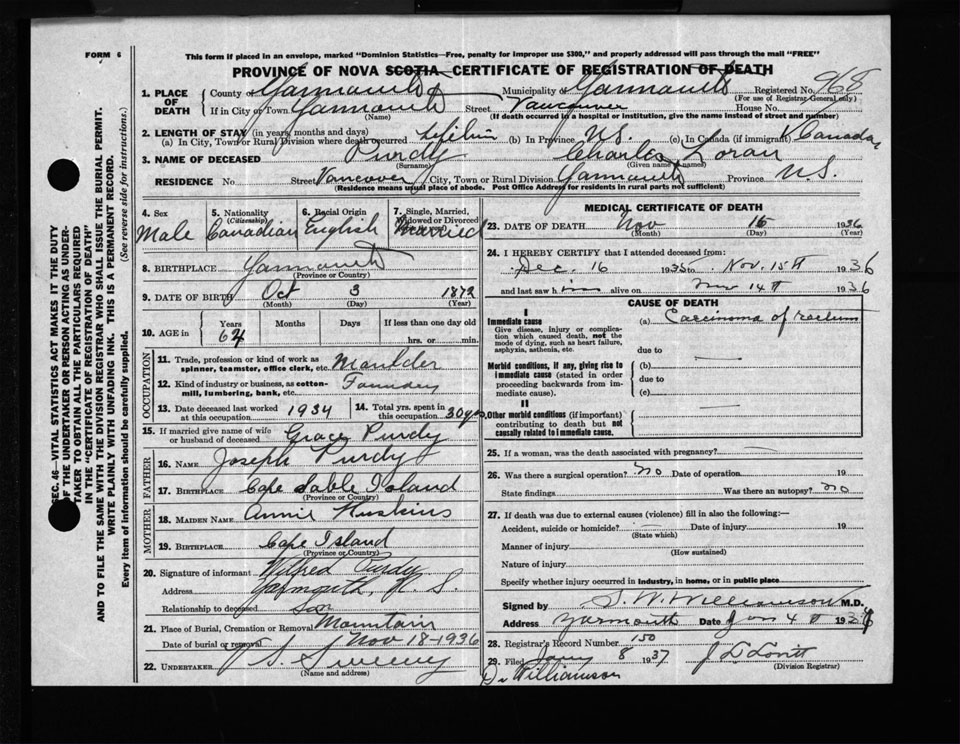 FORM 6
This form if placed in an envelope, marked "Dominion Statistics—Free, penalty for improper use $300," and properly addressed will pass through the mail "FREE"
PROVINCE OF NOVA SCOTIA CERTIFICATE OF REGISTRATION OF DEATH
1. PLACE OF DEATH County of Yarmouth Municipality of Yarmouth Registered No. 968
(For use of Registrar General only)
If in City or Town Yarmouth Street Vancouver House No.
(Name) (If death occurred in a hospital or institution, give the name instead of street and number)
2. LENGTH OF STAY (in years, months and days)
(a) In City, Town or Rural Division where death occurred Lifetime (b) In Province N.S. (c) In Canada (if immigrant) Canada
3. NAME OF DECEASED Purdy Charles Loran
(Surname) (Given name or names)
RESIDENCE No Street Vancouver City, Town or Rural Division Yarmouth Province N.S.
(Residence means usual place of abode. Post Office Address for residents in rural parts not sufficient)
4. Sex Male
5. Nationality (Citizenship) Canadian
6. Racial Origin English
7. Single, Married, Widowed or Divorced Married
8. BIRTHPLACE Yarmouth
(Province or Country)
9. DATE OF BIRTH Oct 3 1872
(Month) (Day) (Year)
10. AGE in Years Months Days If less than one day old
64 hrs. or min.
OCCUPATION
11. Trade, profession or kind of work as spinner, teamster, office clerk, etc. Moulder
12. Kind of industry or business, as cotton-mill, lumbering, bank, etc. Foundry
13. Date deceased last worked at this occupation 1934
14. Total yrs. spent in this occupation 30 yrs
15. If married give name of wife or husband of deceased Grace Purdy
FATHER
16. NAME Joseph Purdy
17. BIRTHPLACE Cape Sable Island
(Province or Country)
MOTHER
18. MAIDEN NAME Annie
19. BIRTHPLACE Cape Island
(Province or Country)
20. Signature of informant Wilfred Purdy
Address Yarmouth, N.S.
Relationship to deceased son
21. Place of Burial, Cremation or Removal Mountain
Date of burial or removal Nov 18-1936
22. UNDERTAKER S. Sweeney
(Name and address)
MEDICAL CERTIFICATE OF DEATH
23. DATE OF DEATH Nov 15 1936
(Month) (Day) (Year)
24. I HEREBY CERTIFY that I attended deceased from:
Dec. 16 1935 to Nov. 15th 1936
and last saw him alive on Nov 14th 1936
CAUSE OF DEATH
I
Immediate cause (a) Carcinoma of rectum
Give disease, injury or complication which caused death, not the mode of dying, such as heart failure, asphyxia, asthenia, etc.
due to
Morbid conditions, if any, giving rise to immediate cause (stated in order proceeding backwards from immediate cause).
(b)
due to
(c)
II
Other morbid conditions (if important) contributing to death but not causally related to immediate cause.
25. If a woman, was the death associated with pregnancy?
26. Was there a surgical operation? no Date of operation 19
State findings Was there an autopsy? no
27. If death was due to external causes (violence) fill in also the following:—
Accident, suicide or homicide? Date of injury 19
(State which)
Manner of injury
(How sustained)
Nature of injury
Specify whether injury occurred in industry, in home, or in public place
Signed by S. W. Williamson M.D.
Address Yarmouth Date Jan 4th 19
28. Registrar's Record Number 150
29. Filed Jany 8 1937
(Division Registrar)
Dr Williamson
SEC. 46—VITAL STATISTICS ACT MAKES IT THE DUTY
OF THE UNDERTAKER OR PERSON ACTING AS UNDER-
TAKER TO OBTAIN ALL THE PARTICULARS REQUIRED
IN THE "CERTIFICATE OF REGISTRATION OF DEATH"
AND TO FILE THE SAME WITH THE DIVISION REGISTRAR WHO SHALL ISSUE THE BURIAL PERMIT.
WRITE PLAINLY WITH UNFADING INK. THIS IS A PERMANENT RECORD.
Every item of information should be carefully supplied. (See reverse side for instructions.)